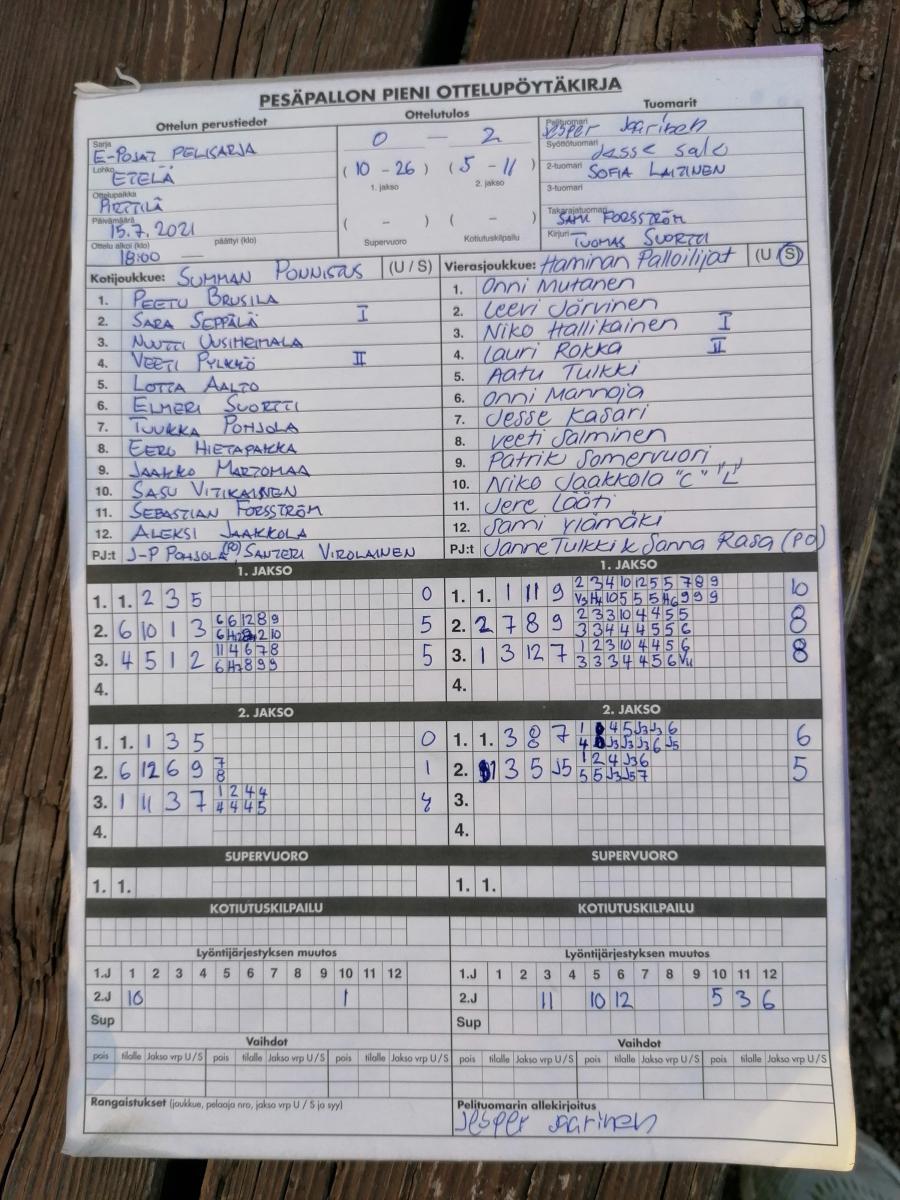 PESÄPALLON PIENI OTTELUPÖYTÄKIRJA
Ottelun perustiedot
Ottelutulos
Tuomarit
Sarja
E-POJAT PELISARJA
Lohko
ETELÄ
Ottelupaikka
Päivämäärä
15.7.2021
Ottelu alkoi (klo) päättyi (klo)
18:00
0 — 2
(10 - 26) (5 - 11)
1. jakso 2. jakso
( - ) ( - )
Supervuoro Kotiutuskilpailu
Pelituomari
Jesper Jaarinen
Syöttötuomari
Jesse Salo
2-tuomari
SOFIA LAITINEN
3-tuomari
Takarajatuomari
SAMU FORSSTRÖM
Kirjuri
TUOMAS SUORTTI
Kotijoukkue: SUMMAN PONNISTUS (U / S)
1. PEETU BRUSILA
2. SARA SEPPÄLÄ I
3. NUUTTI UUSIHEIMALA
4. VEETI PYLKKÖ II
5. LOTTA AALTO
6. ELMERI SUORTTI
7. TUUKKA POHJOLA
8. EERO HIETAPAKKA
9. JAAKKO MARTOMAA
10. SASU VITIKAINEN
11. SEBASTIAN FORSSTRÖM
12. ALEKSI JAAKKOLA
PJ:t J-P POHJOLA (PJ), SANTERI VIROLAINEN
Vierasjoukkue: Haminan Palloilijat (U / S)
1. Onni Mutanen
2. Leevi Järvinen
3. Niko Hallikainen I
4. Lauri Rokka II
5. Aatu Tulkki
6. Onni Mannoja
7. Jesse Kasari
8. Veeti Salminen
9. Patrik Somervuori
10. Niko Jaakkola "C" "L"
11. Jere Lääti
12. Sami Ylämäki
PJ:t Janne Tulkki & Sanna Rasa (PJ)
1. JAKSO
1. 1. 2 3 5 0
2. 6 10 1 3 5
3. 4 5 1 2 5
4.
1. JAKSO
1. 1. 1 11 9 10
2. 2 7 8 9 8
3. 1 3 12 7 8
4.
2. JAKSO
1. 1. 1 3 5 0
2. 6 12 6 9 7 1
8
3. 1 11 3 7 1 2 4 4 4
4 4 4 5
4.
2. JAKSO
1. 1. 3 8 7 6
2. 1 3 5 J5 1 2 4 J3 6 5
5 5 J3 J5 7
3.
4.
SUPERVUORO
1. 1.
SUPERVUORO
1. 1.
KOTIUTUSKILPAILU
KOTIUTUSKILPAILU
Lyöntijärjestyksen muutos
1.J 1 2 3 4 5 6 7 8 9 10 11 12
2.J 10 1
Sup
Lyöntijärjestyksen muutos
1.J 1 2 3 4 5 6 7 8 9 10 11 12
2.J 11 10 12 5 3 6
Sup
Vaihdot
pois tilalle Jakso vrp U / S pois tilalle Jakso vrp U / S pois tilalle Jakso vrp U / S
Vaihdot
pois tilalle Jakso vrp U / S pois tilalle Jakso vrp U / S pois tilalle Jakso vrp U / S
Rangaistukset (joukkue, pelaaja nro, jakso vrp U / S ja syy)
Pelituomarin allekirjoitus
Jesper Jaarinen